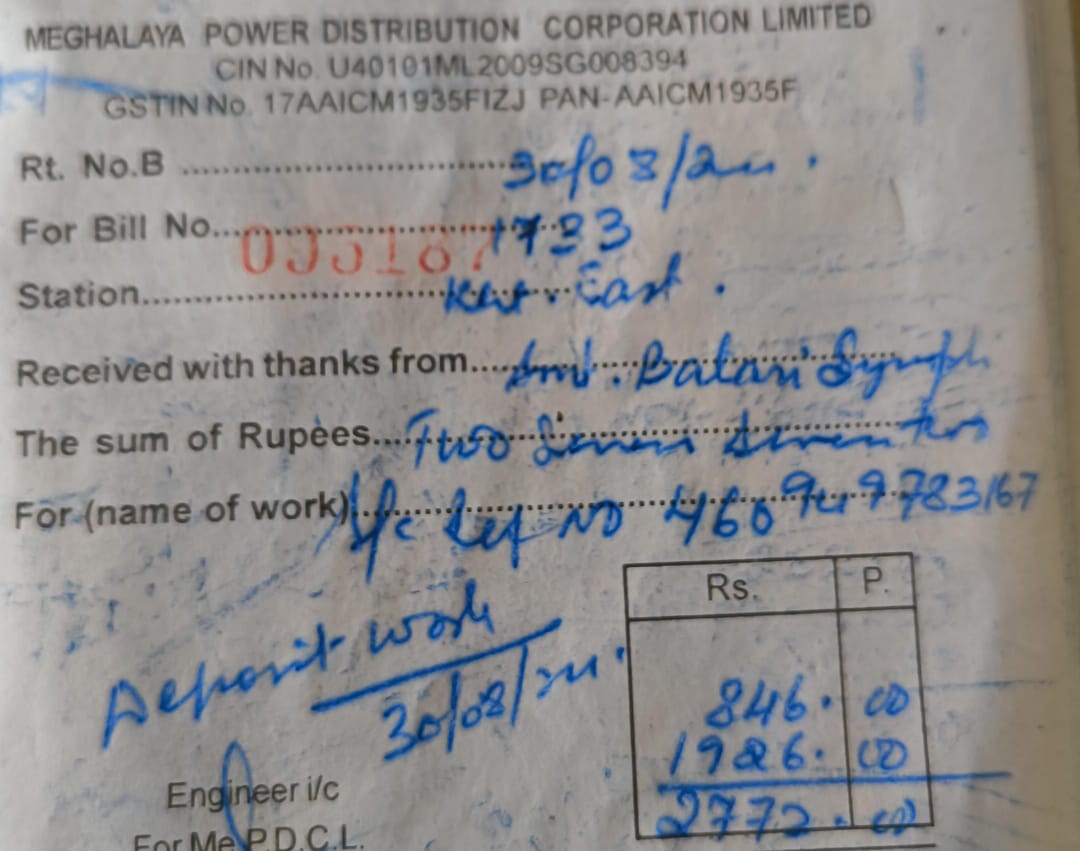 MEGHALAYA POWER DISTRIBUTION CORPORATION LIMITED
CIN No. U40101ML2009SG008394
GSTIN No. 17AAICM1935FIZJ PAN-AAICM1935F
Rt. No.B 30/08/24
For Bill No. 1733
Station East.
Received with thanks from Smt. Batari
The sum of Rupees Two Seven Seven two
For (name of work) S/c Ref NO 460949783167
Rs. P.
Deposit work
30/08/24
846. 00
1926. 00
2772. 00
Engineer i/c
For Me.P.D.C.L.